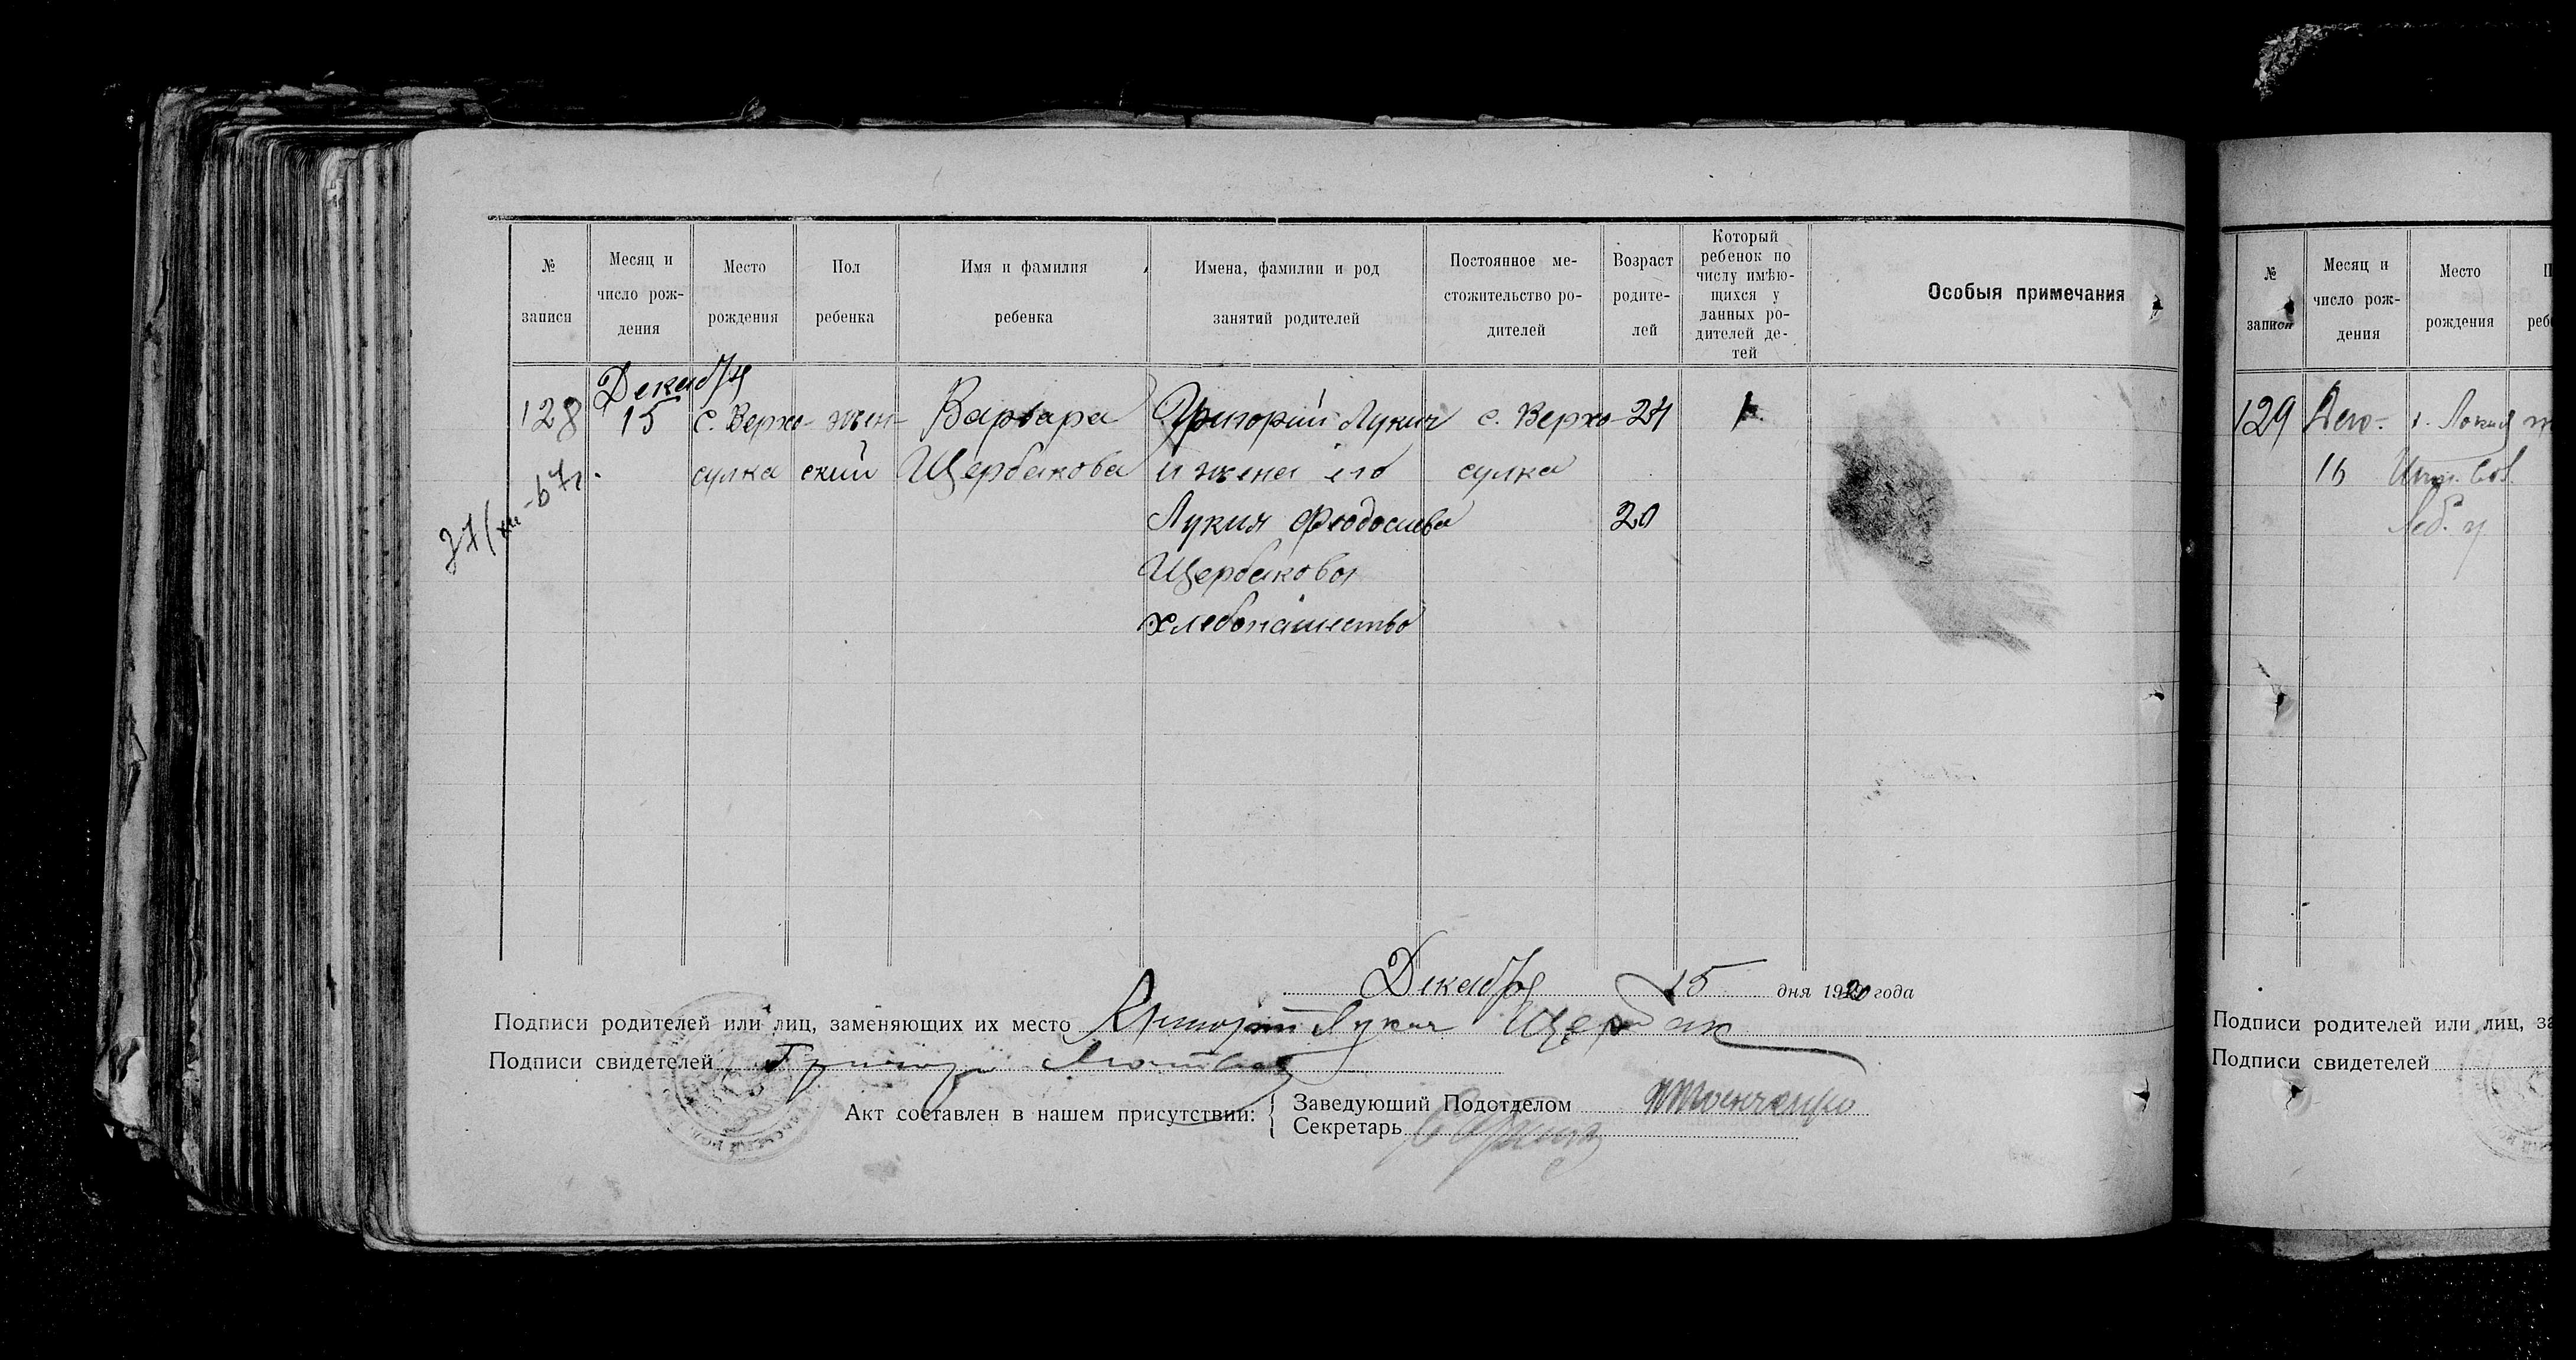 № записи
Месяц и число рождения
Место рождения
Пол ребенка
Имя и фамилия ребенка
Имена, фамилии и род занятий родителей
Постоянное местожительство родителей
Возраст родителей
Который ребенок по числу имѣющихся у данных родителей детей
Особыя примечания
Декабря
128 15 с. Верхо- жен- Варвара Григорий Лукич с. Верхо- 24 1
сулка ский Щербакова и жена его сулка
Лукия Феодосиева 20
Щербаковы
хлебопашество
27/XII-67г.
Декабря 15 дня 1920 года
Подписи родителей или лиц, заменяющих их место Григорий Лукич Щербак
Подписи свидетелей Григори
Акт составлен в нашем присутствии:
Заведующий Подотделом
Секретарь
№ записи
Месяц и число рождения
Место рождения
П
ребе
129 Дек. с.
16
Леб. у.
Подписи родителей или лиц, за
Подписи свидетелей